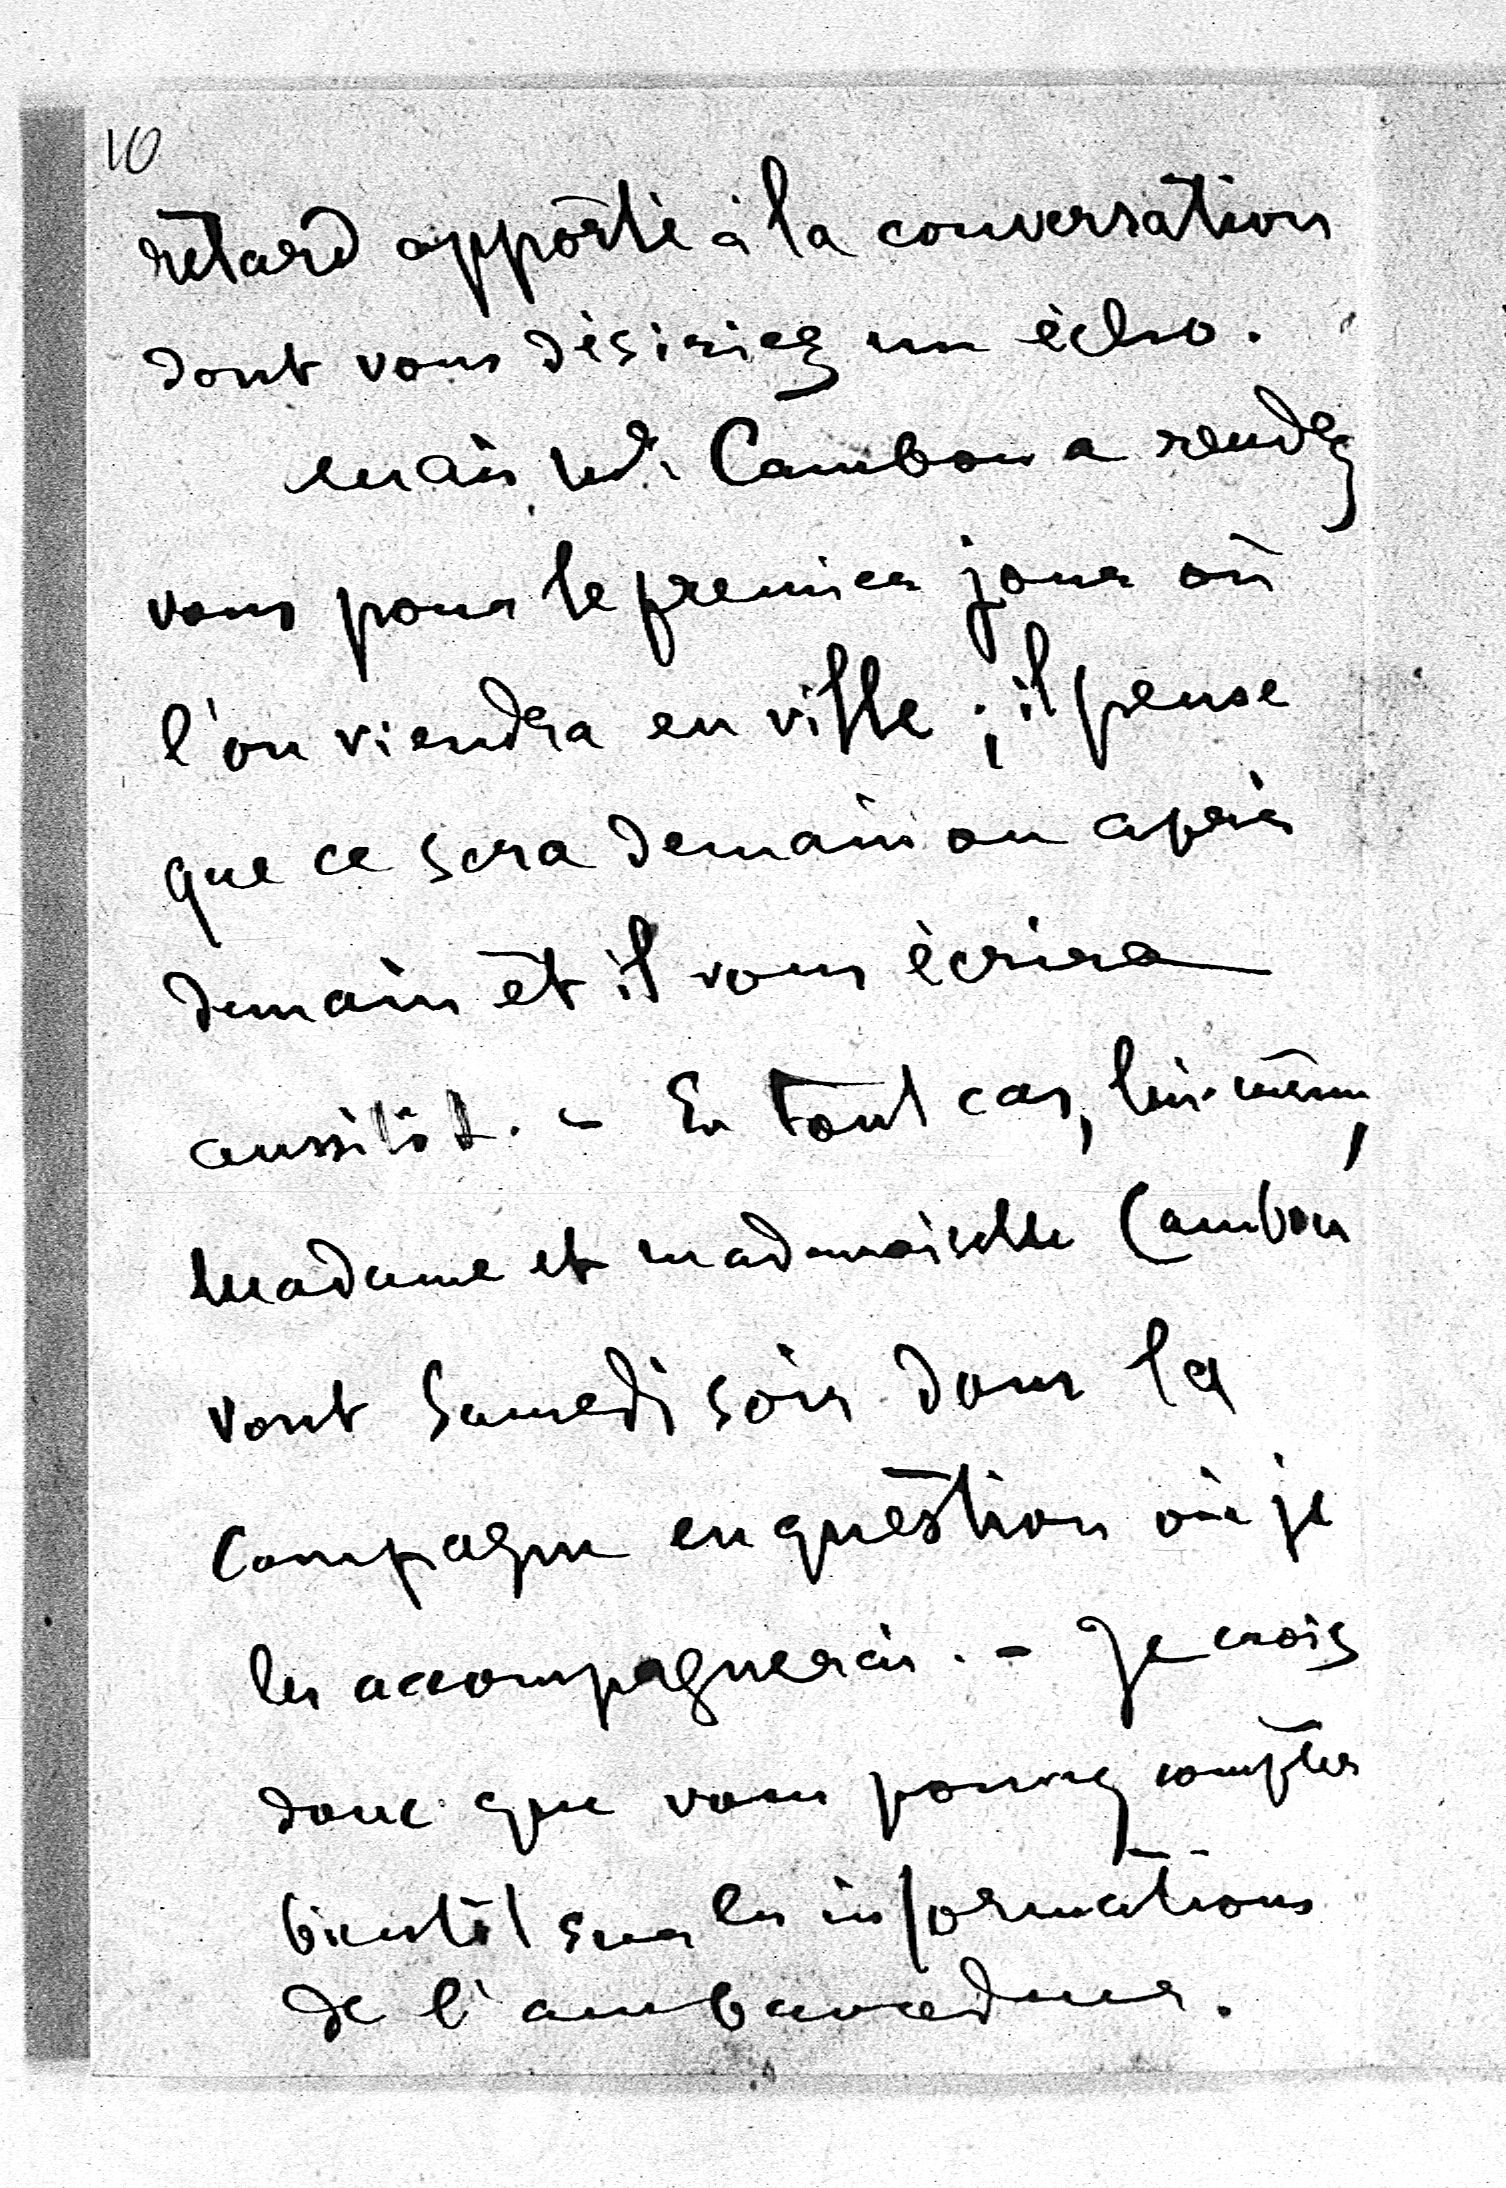 10
retard apporté à la conversation
dont vous désiriez un écho.
mais Mr. Cambon a rendez
vous pour le premier jour où
l'on viendra en ville ; il pense
que ce sera demain ou après
demain et il vous écrira
aussitôt. - En tout cas, lui-même,
Madame et mademoiselle Cambon
vont Samedi soir dans la
campagne en question où je
les accompagnerai. - Je crois
donc que vous pouvez compter
bientôt sur les informations
de l'ambassadeur.